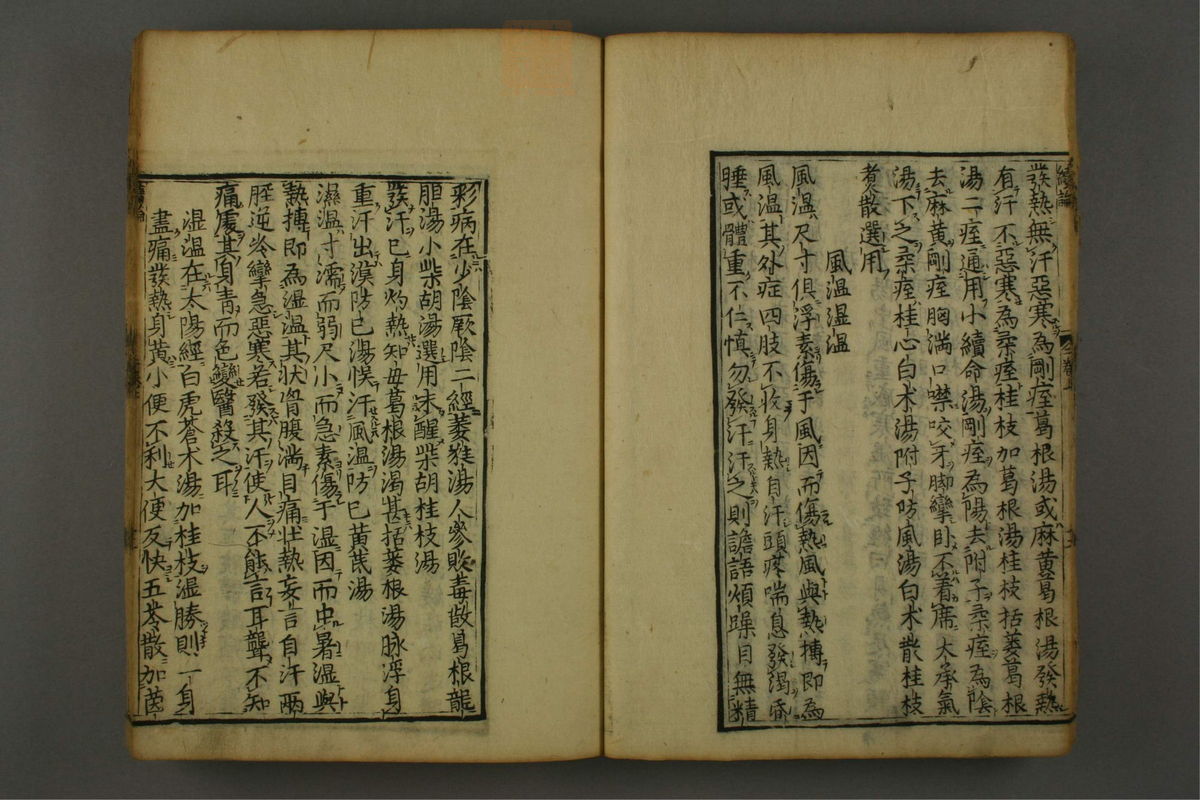 發熱無汗惡寒為剛痓葛根湯或麻黄葛根湯發熱
有汗不惡寒為柔痓桂枝加葛根湯桂枝括蔞葛根
湯二痓通用小續命湯剛痓為陽去附子柔痓為陰
去麻黄剛痓胸滿口噤咬牙脚攣卧不着席大承氣
湯下之柔痓桂心白朮湯附子防風湯白朮散桂枝
煮散選用
風温湿温
風温尺寸俱浮素傷于風因而傷熱風與熱搏即為
風温其外症四肢不收身熱自汗頭疼喘息發渴昏
睡或體重不仁慎勿發汗汗之則譫語煩躁目無精
彩病在少陰厥陰二經萎蕤湯人參敗毒散葛根龍
胆湯小柴胡湯選用未醒柴胡桂枝湯
發汗已身灼熱知母葛根湯渴甚括蔞根湯脉浮身
重汗出漢防已湯悮汗風温防已黄茋湯
濕温寸濡而弱尺小而急素傷于湿因而中暑湿與
熱搏即為湿温其状胷腹滿目痛壮熱妄言自汗兩
胫逆冷攣急惡寒若發其汗使人不能言耳聾不知
痛處其身青而色變醫殺之耳
湿温在太陽經白虎蒼朮湯加桂枝湿勝則一身
盡痛發熱身黄小便不利大便反快五苓散加茵